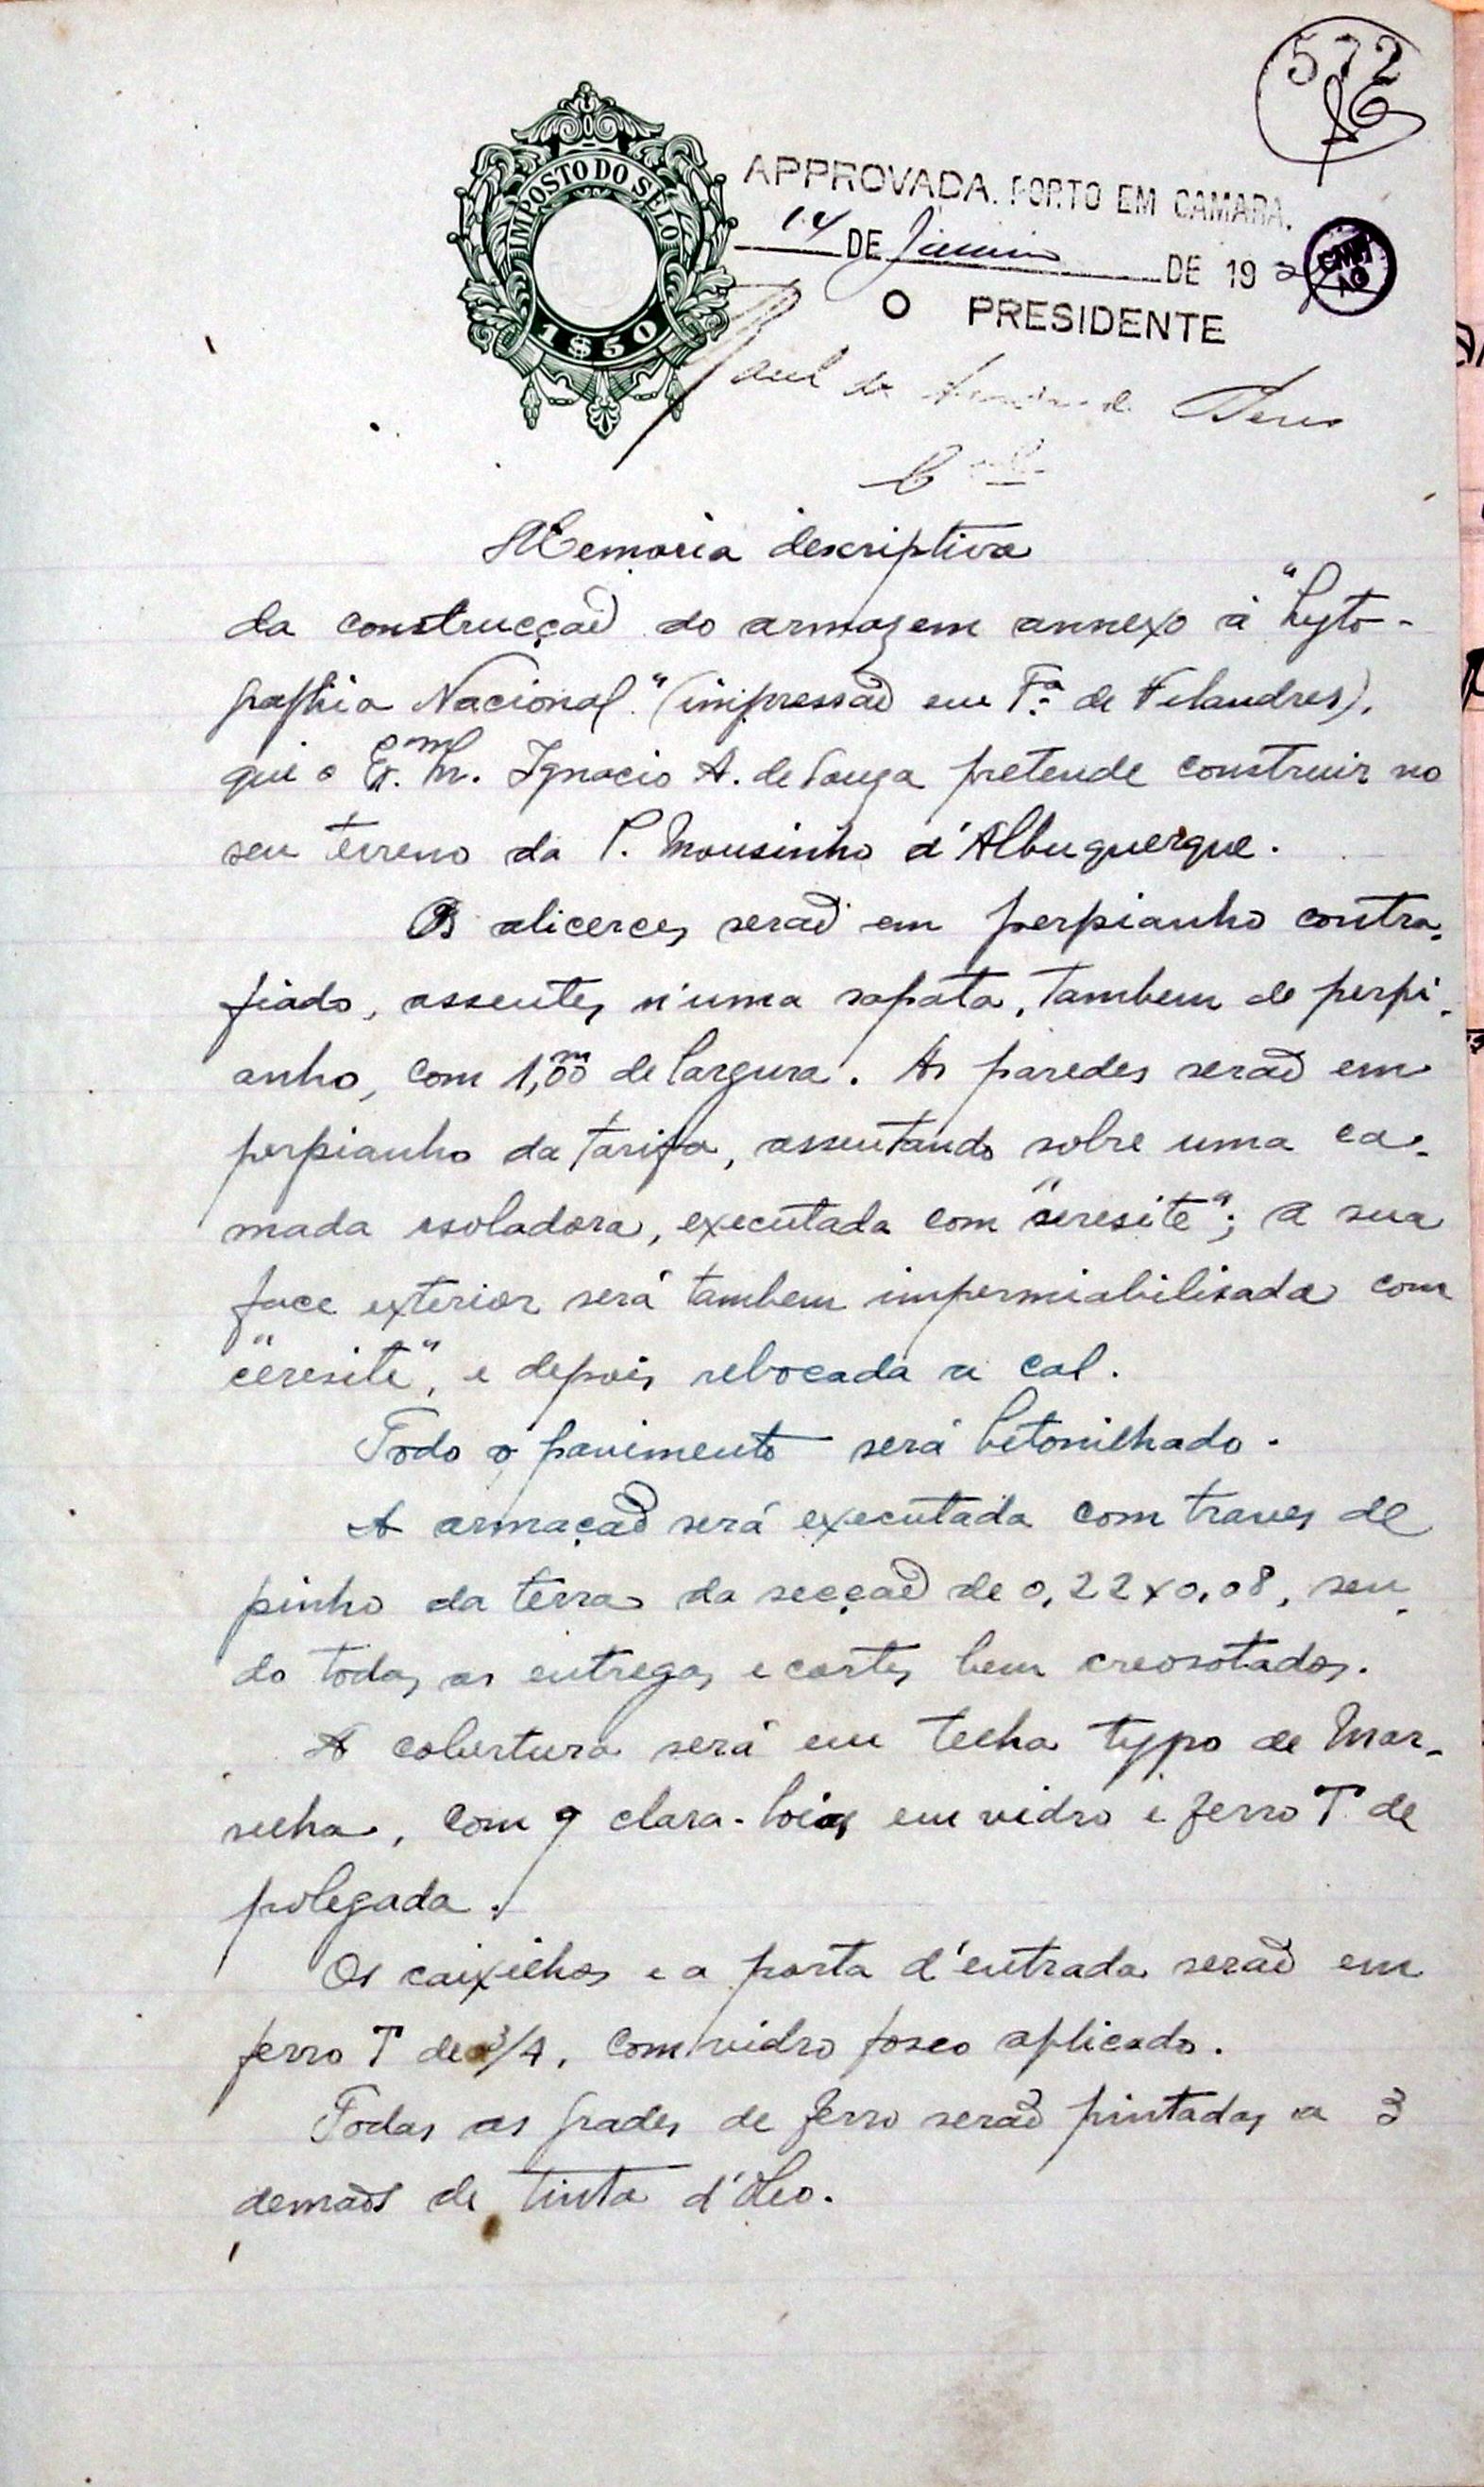 572
IMPOSTO DO SELO
1$50
APPROVADA. PORTO EM CAMARA,
14 DE Janeiro DE 192
CMP
AG
O PRESIDENTE
Raul de
Memoria descriptiva
da construcção do armazem annexo à "Lyto-
graphia Nacional" (impressão em Fª. de Flandres),
que o Exmo. Sr. Ignacio A. de Souza pretende construir no
seu terreno da P. Mousinho d'Albuquerque.
Os alicerces serão em perpianho contra-
fiado, assentes n'uma sapata, tambem de perpi-
anho, com 1,m00 de largura. As paredes serão em
perpianho da tarifa, assentando sobre uma ca-
mada isoladora, executada com "ceresite"; a sua
face exterior será tambem impermiabilisada com
"ceresite", e depois rebocada a cal.
Todo o pavimento será betonilhado.
A armação será executada com traves de
pinho da terra da secção de 0,22x0,08, sen-
do todas as entregas e cortes bem creosotados.
A cobertura será em telha typo de Mar-
selha, com 9 clara-boias em vidro e ferro T de
polegada.
Os caixilhos e a porta d'entrada serão em
ferro T de 3/4, com vidro fosco aplicado.
Todas as grades de ferro serão pintadas a 3
demãos de tinta d'óleo.